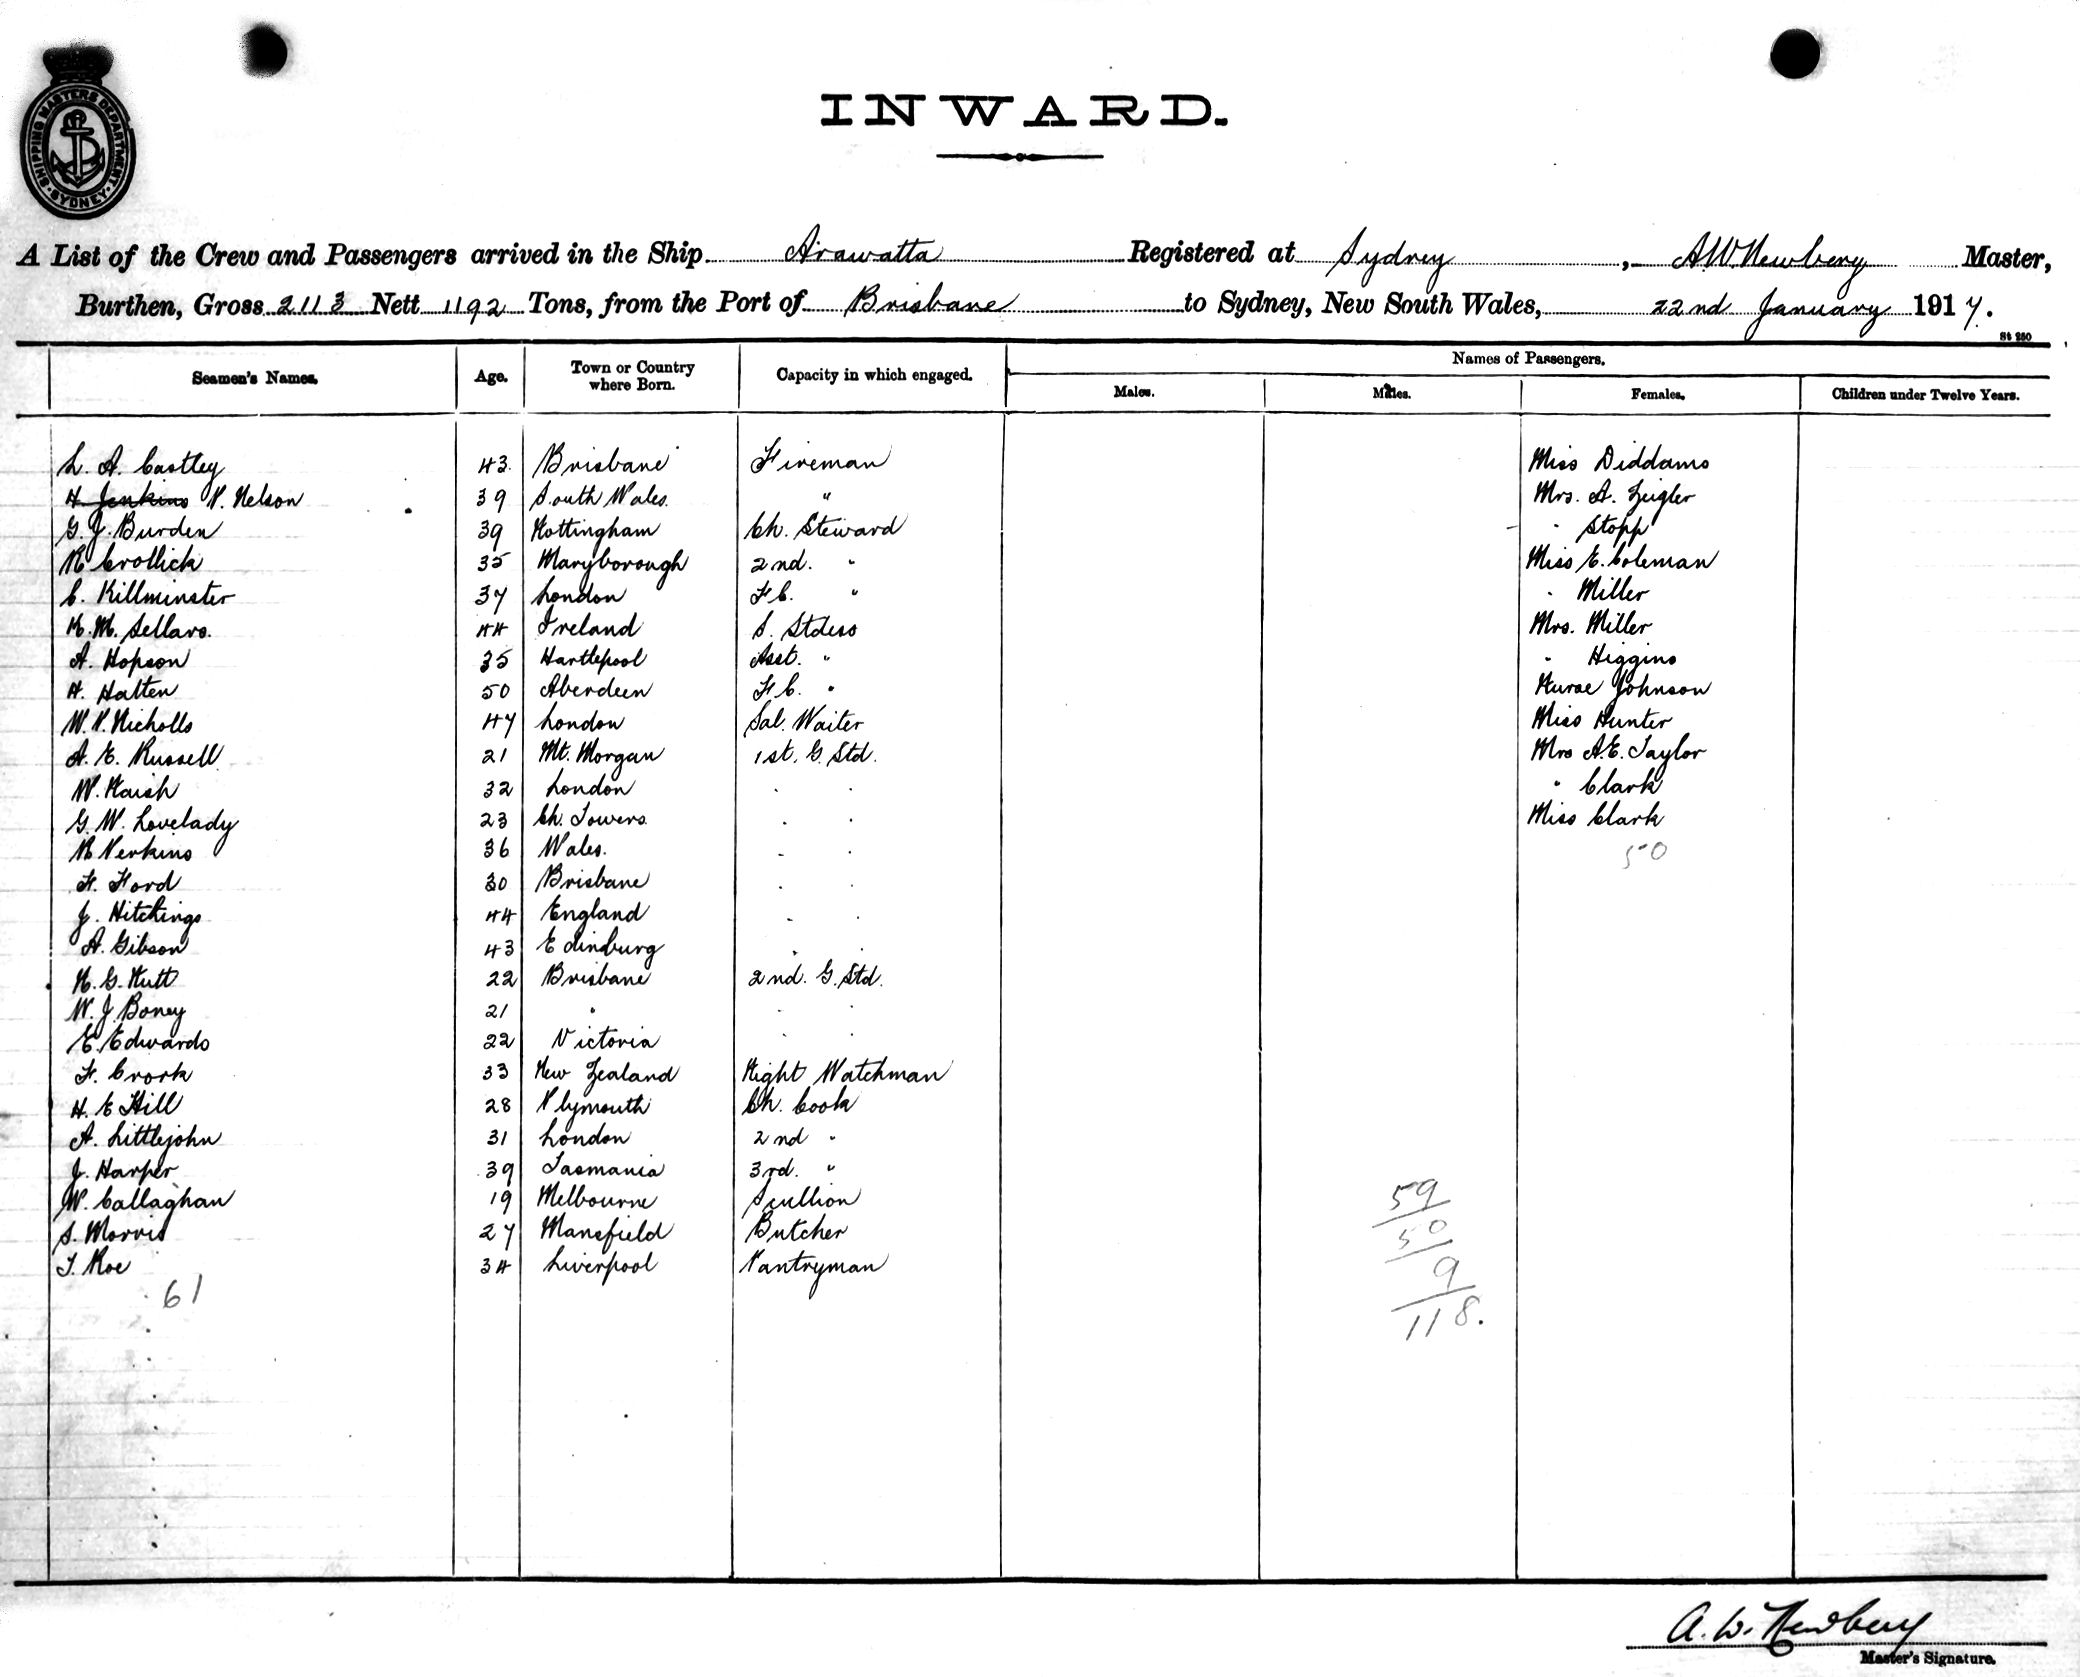 SHIPPING MASTERS DEPARTMENT · SYDNEY ·
INWARD.
A List of the Crew and Passengers arrived in the Ship Arawatta Registered at Sydney, A.W. Newbery Master,
Burthen, Gross 2113 Nett 1192 Tons, from the Port of Brisbane to Sydney, New South Wales, 22nd January 1917.
St 250
Names of Passengers.
Seamen's Names. Age. Town or Country where Born. Capacity in which engaged. Males. Males. Females. Children under Twelve Years.
L. A. Castley 43 Brisbane Fireman Miss Diddams
H. Jenkins P. Nelson 39 South Wales. " Mrs. A. Zeigler
G. J. Burden 39 Nottingham Ch. Steward " Stopp
R Crollick 35 Maryborough 2nd. " Miss E. Coleman
C. Killminster 37 London F.C. " " Miller
K. M. Sellars. 44 Ireland S. Stdess Mrs. Miller
A. Hopson 35 Hartlepool Asst. " " Higgins
H. Hatten 50 Aberdeen F.C. " Nurse Johnson
W. P. Nicholls 47 London Sal. Waiter Miss Hunter
A. E. Russell 21 Mt. Morgan 1st. G. Std. Mrs A.E. Taylor
W. Naish 32 London " " " Clark
G. W. Lovelady 23 Ch. Towers " " Miss Clark
R Perkins 36 Wales. " " 50
F. Ford 30 Brisbane " "
J. Hitchings 44 England " "
A. Gibson 43 Edinburg " "
N. G. Nutt 22 Brisbane 2nd. G. Std.
W. J. Boney 21 " " "
E. Edwards 22 Victoria " "
F. Crook 33 New Zealand Night Watchman
H. E Hill 28 Plymouth Ch. Cook
A. Littlejohn 31 London 2nd "
J. Harper 39 Tasmania 3rd. "
W. Callaghan 19 Melbourne Scullion 59
S. Morris 27 Mansfield Butcher 50
T. Roe 34 Liverpool Pantryman 9
61 118.
A. W. Newbery
Master's Signature.